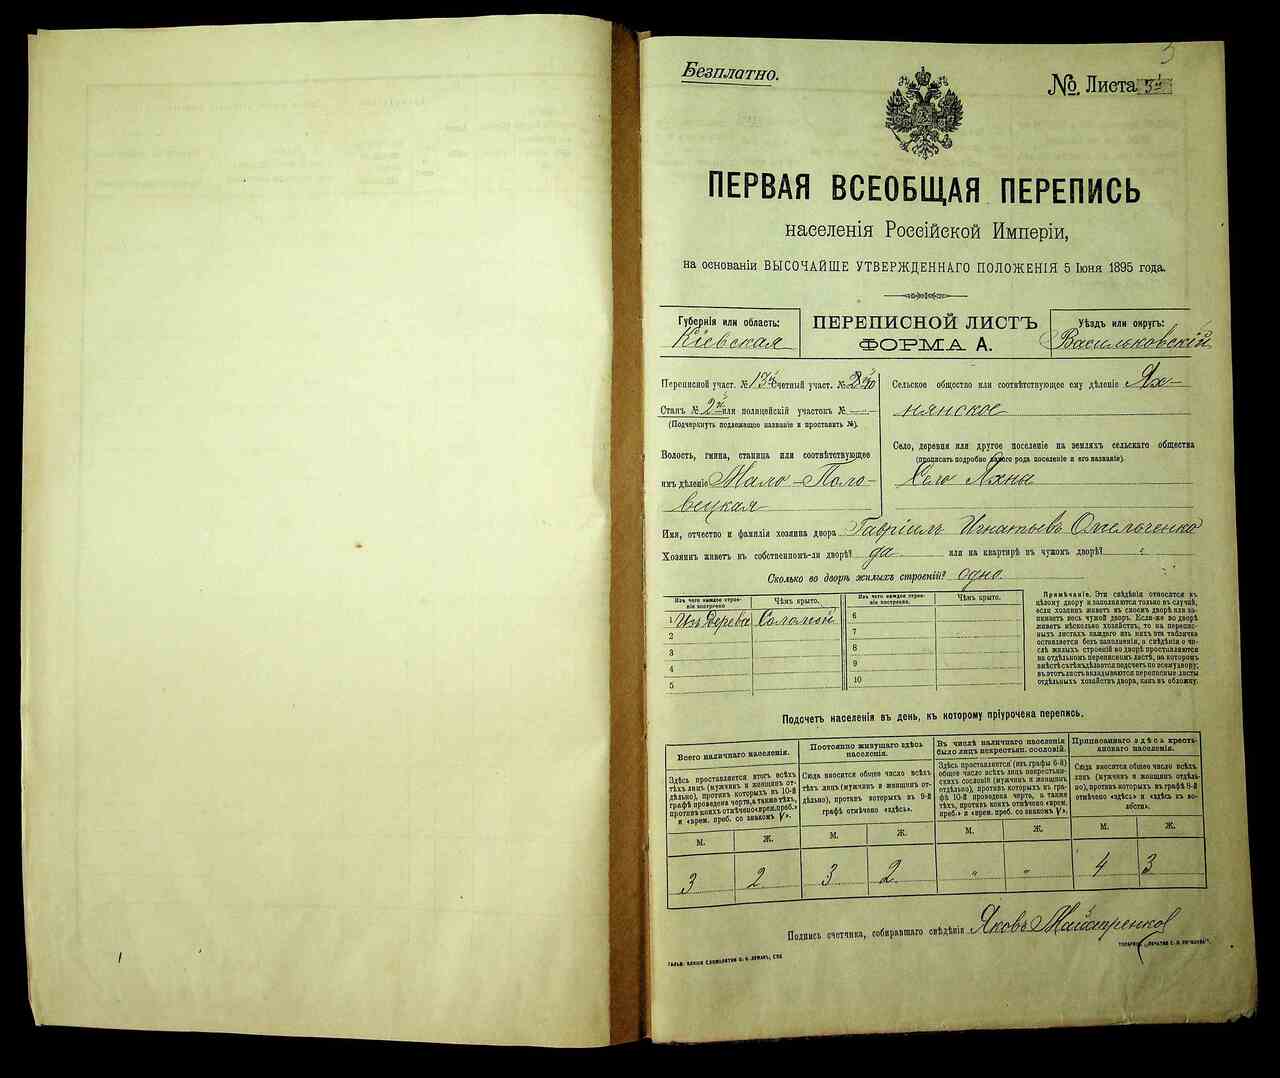 Безплатно.
№ Листа 3й
ПЕРВАЯ ВСЕОБЩАЯ ПЕРЕПИСЬ
населенія Россійской Имперіи,
на основаніи ВЫСОЧАЙШЕ УТВЕРЖДЕННАГО ПОЛОЖЕНІЯ 5 Іюня 1895 года.
Губернія или область:
Кіевская
ПЕРЕПИСНОЙ ЛИСТЪ
ФОРМА А.
Уѣздъ или округъ:
Васильковскій
Переписной участ. № 13й Счетный участ. №
Станъ № 2й или полицейскій участокъ № —
(Подчеркнуть подлежащее названіе и проставить №).
Волость, гмина, станица или соотвѣтствующее
имъ дѣленіе Мало-Поло-
вецкая
Сельское общество или соотвѣтствующее ему дѣленіе Ях-
нянское
Село, деревня или другое поселеніе на земляхъ сельскаго общества
(прописать подробно какого рода поселеніе и его названіе).
Село Яхны
Имя, отчество и фамилія хозяина двора Гавріилъ Игнатьевъ Омельченко
Хозяинъ живетъ въ собственномъ-ли дворѣ? да или на квартирѣ въ чужомъ дворѣ? "
Сколько во дворѣ жилыхъ строеній? одно.
Изъ чего каждое строеніе построено
Чѣмъ крыто.
1 Изъ дерева Соломой
2
3
4
5
Изъ чего каждое строеніе построено
Чѣмъ крыто.
6
7
8
9
10
Примѣчаніе. Эти свѣдѣнія относятся къ
цѣлому двору и заполняются только въ случаѣ,
если хозяинъ живетъ въ своемъ дворѣ или за-
нимаетъ весь чужой дворъ. Если-же во дворѣ
живетъ нѣсколько хозяйствъ, то на перепис-
ныхъ листахъ каждаго изъ нихъ эта табличка
оставляется безъ заполненія, а свѣдѣнія о чи-
слѣ жилыхъ строеній во дворѣ проставляются
на отдѣльномъ переписномъ листѣ, на которомъ
вмѣстѣ съ тѣмъ дѣлается подсчетъ по всему двору;
въ этотъ листъ вкладываются переписные листы
отдѣльныхъ хозяйствъ двора, какъ въ обложку.
Подсчетъ населенія въ день, къ которому пріурочена перепись.
Всего наличнаго населенія.
Здѣсь проставляется итогъ всѣхъ
тѣхъ лицъ (мужчинъ и женщинъ от-
дѣльно), противъ которыхъ въ 10-й
графѣ проведена черта, а также тѣхъ,
противъ коихъ отмѣчено «врем. преб.»
и «врем. преб. со знакомъ V».
М. Ж.
3 2
Постоянно живущаго здѣсь
населенія.
Сюда вносится общее число всѣхъ
тѣхъ лицъ (мужчинъ и женщинъ от-
дѣльно), противъ которыхъ въ 9-й
графѣ отмѣчено «здѣсь».
М. Ж.
3 2
Въ числѣ наличнаго населенія
было лицъ некрестьян. сословій.
Здѣсь проставляется (изъ графы 6-й)
общее число всѣхъ лицъ некрестьян-
скихъ сословій (мужчинъ и женщинъ
отдѣльно), противъ которыхъ въ гра-
фѣ 10-й проведена черта, а также
тѣхъ, противъ коихъ отмѣчено «врем.
преб.» и «врем. преб. со знакомъ V».
М. Ж.
" "
Приписаннаго здѣсь кресть-
янскаго населенія.
Сюда вносится общее число всѣхъ
лицъ (мужчинъ и женщинъ отдѣль-
но), противъ которыхъ въ графѣ 8-й
отмѣчено «здѣсь» и «здѣсь въ во-
лости».
М. Ж.
4 3
Подпись счетчика, собиравшаго свѣдѣнія Яковъ